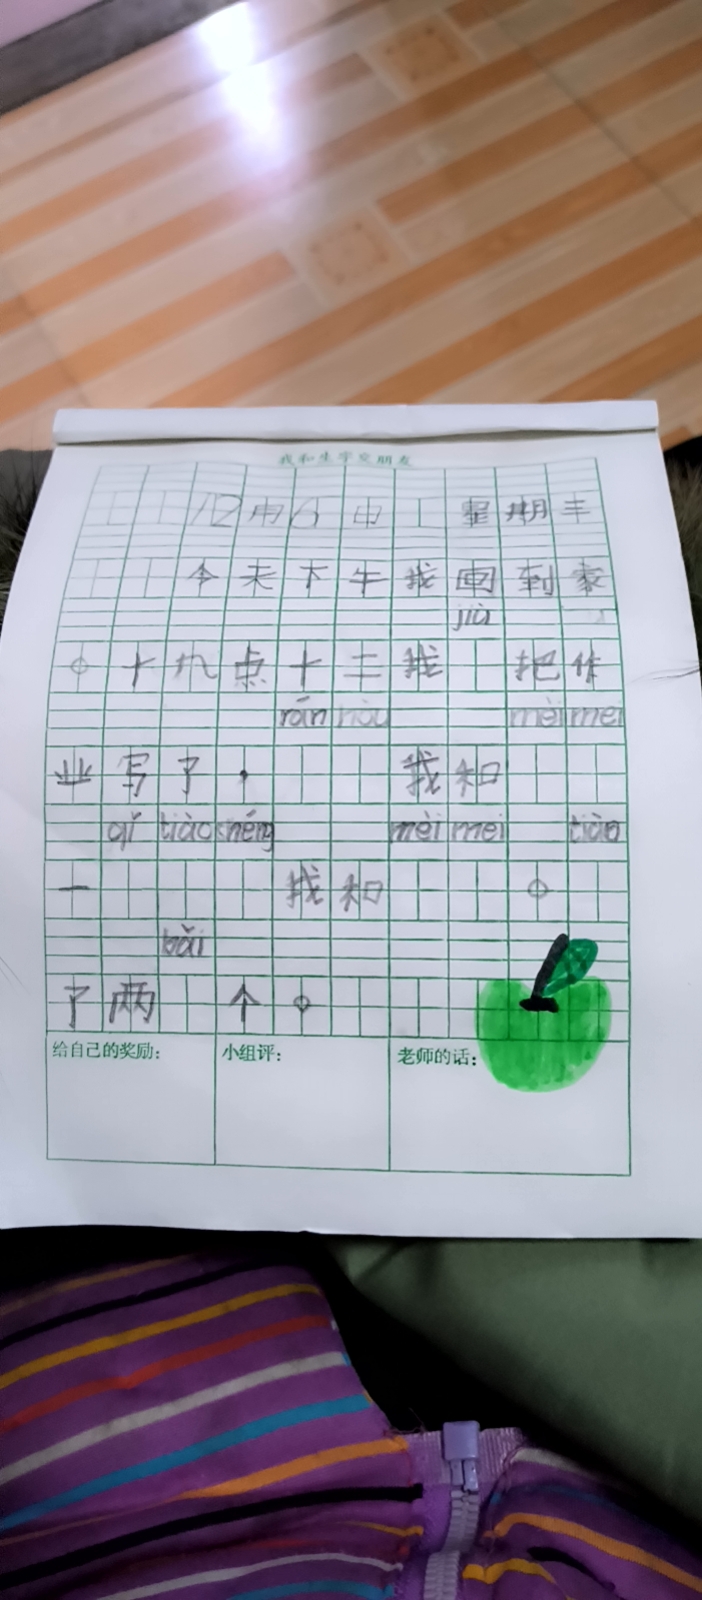 我和生字交朋友
12月6日 星期五
今天下午我回到家
jiù
。十九点十二我 把作
rán hòu mèi mei
业写了,我和
qǐ tiào shéng mèi mei tiào
一 我和 。
bǎi
了两 个。
给自己的奖励: 小组评: 老师的话: